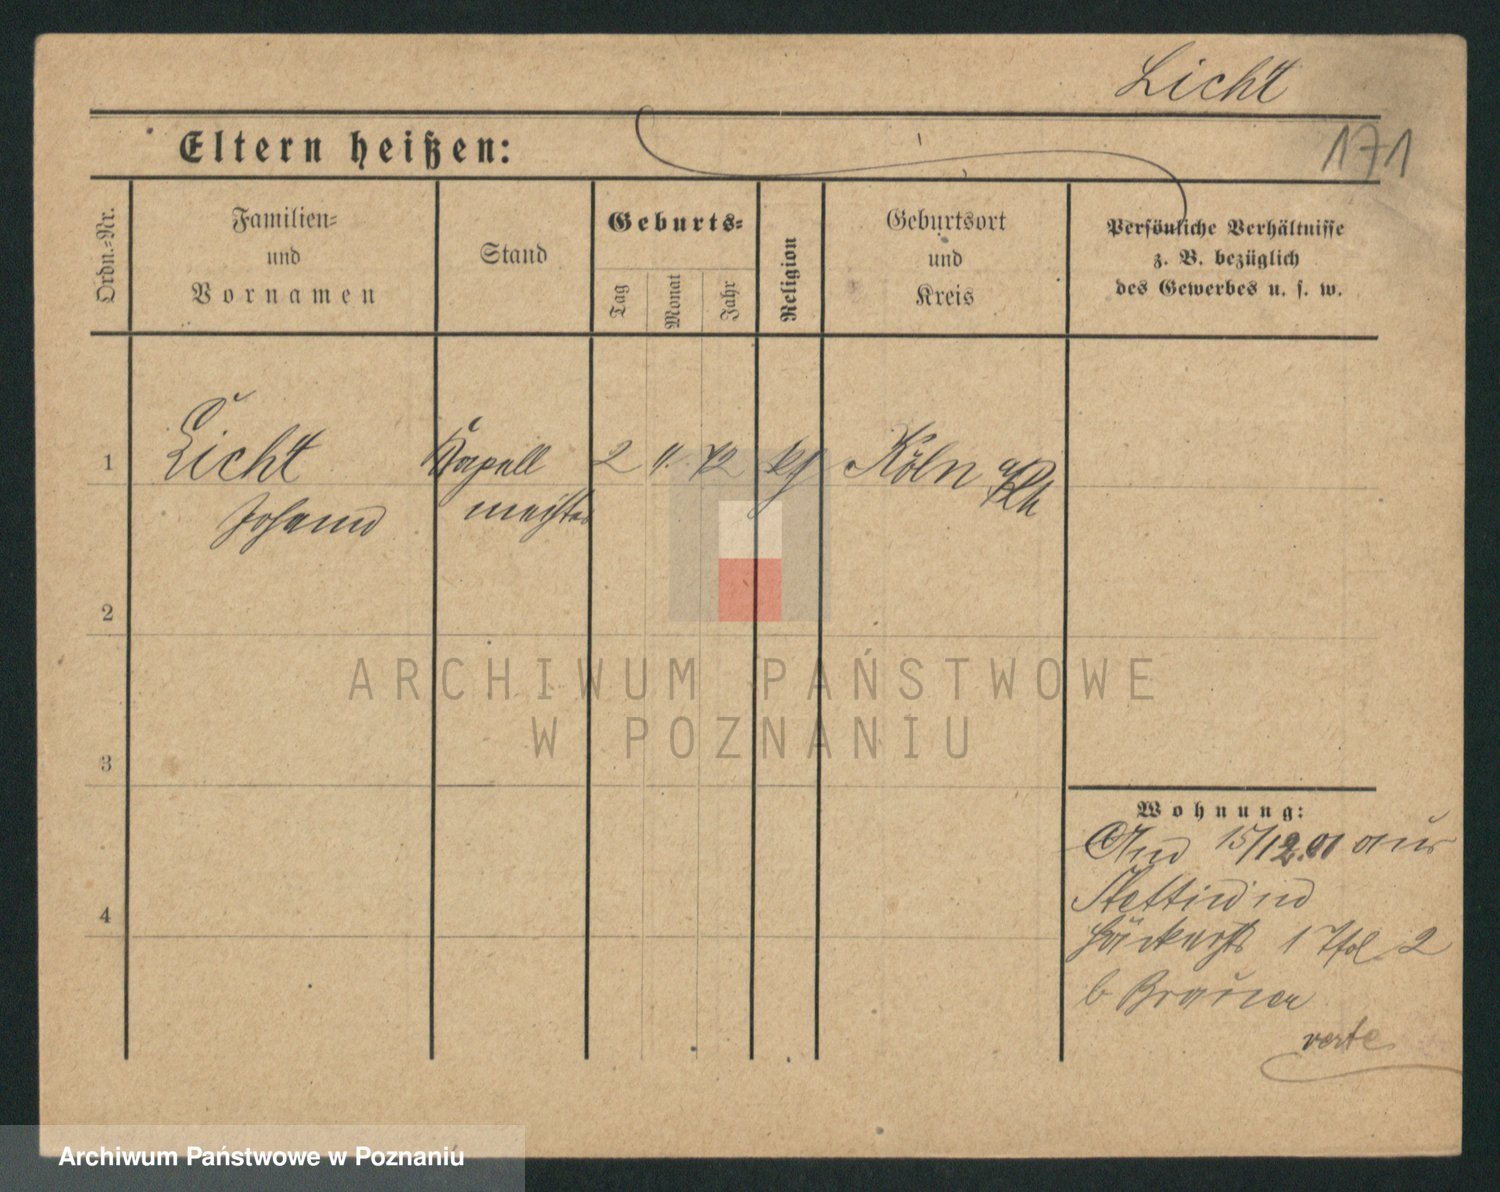 Licht
171
Eltern heißen:
Ordn.-Nr.
Familien-
und
Vornamen
Stand
Geburts-
Tag
Monat
Jahr
Religion
Geburtsort
und
Kreis
Persönliche Verhältnisse
z. B. bezüglich
des Gewerbes u. s. w.
1
Licht
Johann
Kapell
meister
2
11.
72
Köln a/Rh
2
3
4
Wohnung:
15/12.01 aus
Stettin
1 2
b Brauer
verte
ARCHIWUM PAŃSTWOWE
W POZNANIU
Archiwum Państwowe w Poznaniu